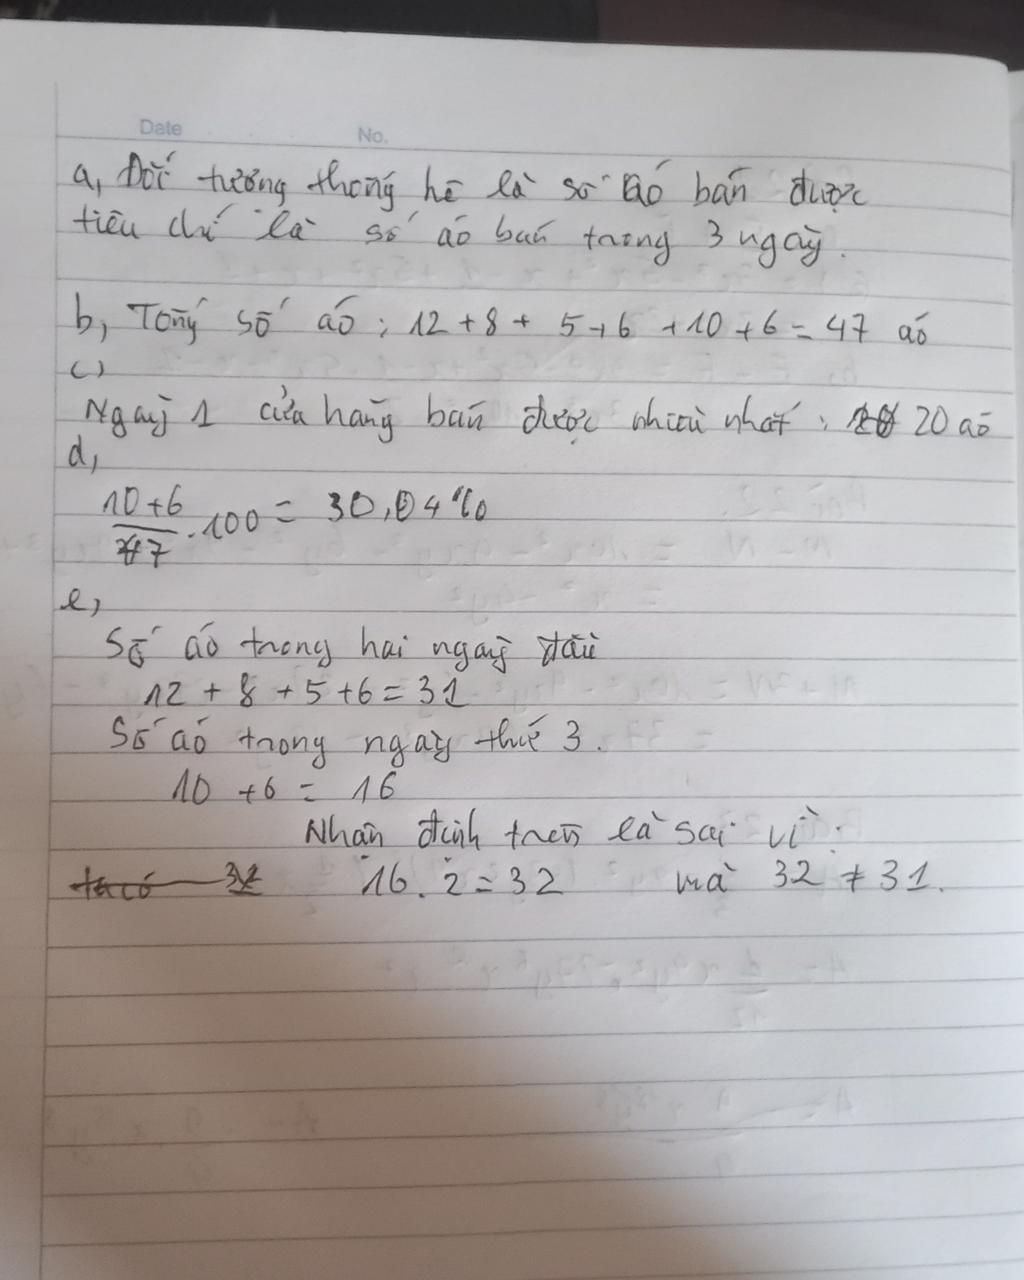 Date No.
a, Đối tượng thống kê là số áo bán được
tiêu chí là số áo bán trong 3 ngày.
b, Tổng số áo : 12 + 8 + 5 + 6 + 10 + 6 = 47 áo
c)
Ngày 1 cửa hàng bán được nhiều nhất : 20 áo
d,
10 + 6 / 47 . 100 = 30,04%
e,
Số áo trong hai ngày đầu
12 + 8 + 5 + 6 = 31
Số áo trong ngày thứ 3.
10 + 6 = 16
Nhận định trên là sai vì :
16 . 2 = 32 mà 32 ≠ 31.